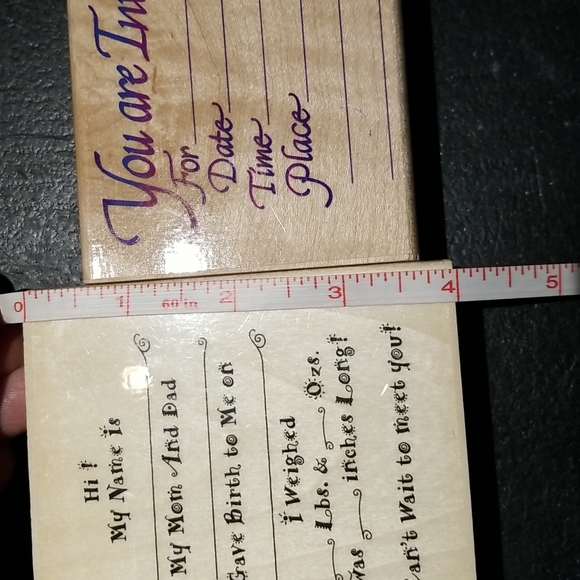 You are
For
Date
Time
Place
0 1 60 in 2 3 4 5
Hi !
My Name is
My Mom And Dad
Gave Birth to Me on
I Weighed
Lbs. & Ozs.
Was inches Long!
Can't Wait to meet you!